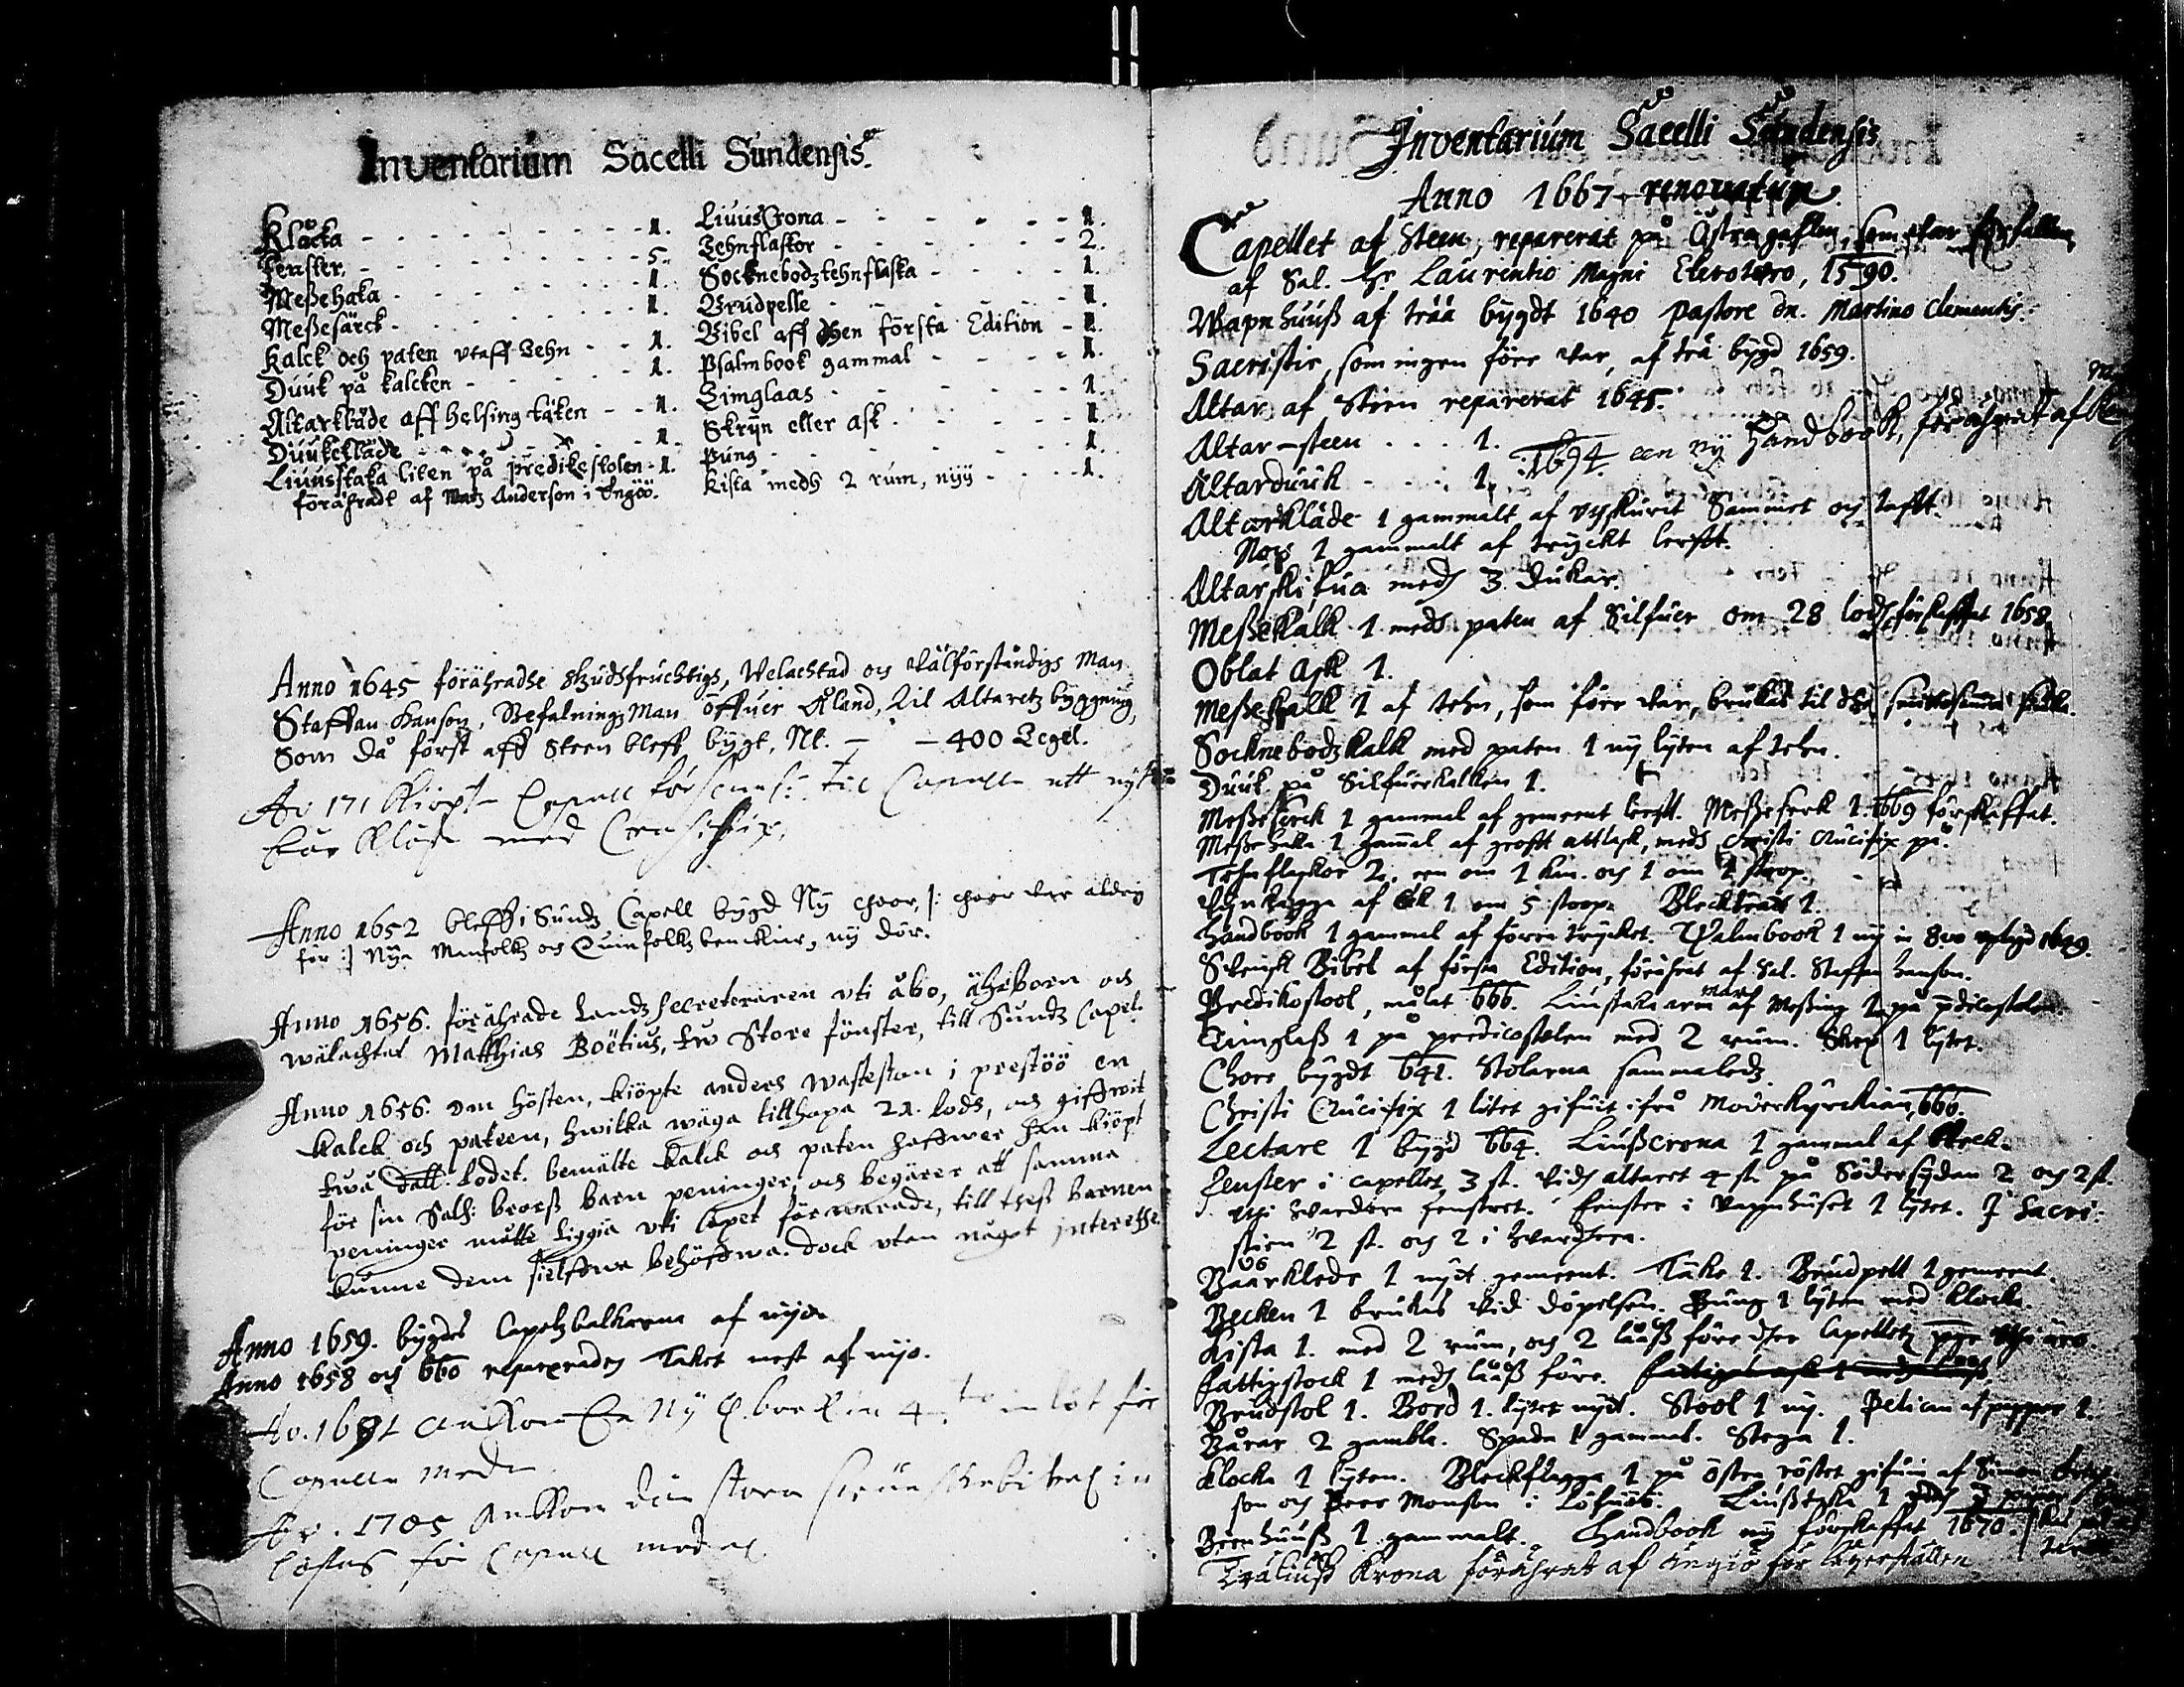 Inventarium Sacelli Sundensis.
Klåcka - - - - - - - - 1.
Fenster - - - - - - - - 5.
Meßehaka - - - - - - - 1.
Meßesärck - - - - - - - 1.
Kalck och paten vtaff Tehn - - 1.
Duuk på kalcken - - - - - 1.
Altarkläde aff helsing täken - - 1.
Duukekläde - - - - - - 1.
Liuusstaka liten på predikestolen - 1.
förähradt af Matz Anderson i Ingöö.
LiuusCrona - - - - - - 1.
Tehnflaskor - - - - - - 2.
Socknebodz tehnflaska - - - - 1.
Brudpelle - - - - - - 1.
Bibel aff den första Edition - 1.
Psalmbook gammal - - - - 1.
Timglaas - - - - - - 1.
Skryn eller ask - - - - 1.
Pung - - - - - - - 1.
Kista medh 2 rum, nyy - - - 1.
Anno 1645 förähradhe Gudhfruchtigh, Welachtad och wälförståndigh Man
Staffan Hanson, Befalningz Man öffuer Åland, til Altaretz byggning,
Som då först aff Steen bleff bygt, Nl. - - 400 Tegel.
Ao 171 kiöpte Capell til Capelle ett nytt
med
Anno 1652 bleff i Sundz Capell bygd Ny choor, /: choor war aldrig
för :/ Nya Manfolkz och Quinfolkz benckiar, ny dör.
Anno 1656. förährade Landz Secreteraren vti åbo, ähreborn och
wälachtat Matthias Boëtius, tw Store fönster, till Sundz Capel.
Anno 1656. Om hösten, kiöpte anders wastesson i prestöö en
Kalck och pateen, hwilka wäga tillhopa 21. lodh, och giffwit
twå dall. lodet. bemälte kalck och paten haffwer han kiöpt
för sin Salh: brorß barn peninger, och begärer att samma
peninger motte liggia vti Capet förwarade, till theß barnen
kunne dem sielffwa behöffwa. dock vtan något interesse.
Anno 1659. bygdes Capelz balkarna af nyo
Anno 1658 och 660 reparerades Taket mest af nyo.
Ao. 1684 ankom En Ny in 4to för
Capellee medn.
Ao. 1705 ankom den stora in
för Capell medel
Inventarium Sacelli Sundensis
Anno 1667 renovatum.
Capellet af Steen, reparerat på Östra gaflen, som war förfallen
af Sal. Hr Laurentio Magni, 1590.
Wapnhuuß af trää bygdt 1640 pastore Dn. Martino Clementis.
Sacristie, som ingen före war, af trä bygd 1659.
Altar af Steen reparerat 1645.
Altar-steen . . . 1.
1694. een ny Handbook, förährat af
Altarduuk - - - 1.
Altarkläde 1 gammalt af vtskurit Sammet och taftt.
Noch 1 gammalt af tryckt lerfft.
Altarskifua medh 3 dukar.
Meßekalk 1 medh paten af Silfuer om 28 lodh, förskaffat 1658.
Oblat Ask 1.
Meßekalk 1 af tehn, som före war, brukas til
Socknebodz kalk med paten 1 ny lyten af tehn.
Duuk på Silfuerkalken 1.
Meßeserk 1 gammal af gemeent lerfft. Meßeserk 1. 1669 förskaffat.
Meße haka 1 gammal af grofft attlask, medh Christi Crucifix på.
Tehnflaskor 2, een om 1 kan. och 1 om 1 stoop.
Wynkagge af eek 1 om 5 stoop. Blecktratt 1.
Handbook 1 gammal af förre trycket. Psalmbook 1 ny in 8vo 1649.
Swensk Bibel af första Edition, förährat af Sal. Staffan Hanson.
Predikostool, målat 666. Liusstake arm af Meßing 1 på pdicostolen.
Timglaß 1 på predicostolen med 2 rum. Skep 1 lytet.
Chore bygdt 641. Stolarna sammaledz
Christi Crucifix 1 litet gifuit ifrå Moderkyrckian 666.
Lectare 1 bygd 664. Liußcrona 1 gammal af bleck.
Fenster i capellet, 3 st. widh altaret 4 st. på Södersydan 2 och 2 st.
vthi hwardera fenstret. Fenster i Wapnhuset 1 lytet. I Sacri-
stien 2 st. och 2 i hwardera.
Baarkläde 1 nytt gemeent. Täke 1. Brudpell 1 gemeent.
Becken 1 brukas wid döpelsen. Pung 1 lyten med klocka.
Kista 1. med 2 rum, och 2 lååß före ther Capelletz
Fattigstock 1 medh lååß före.
Brudstol 1. Bord 1. lytet nytt. Stool 1 ny. Pelican af papper 1.
Bårar 2 gambla. Spada 1 gammal. Stega 1.
Klocka 1 lyten. Bleckflagga 1 på östra röstet gifuin af Simon
son och Peer Monson i Liußstake 1
Beenhuuß 1 gammalt. Handbook ny förskaffat 1670.
Träliuß Krona förährat af Ängiö för lägerställen